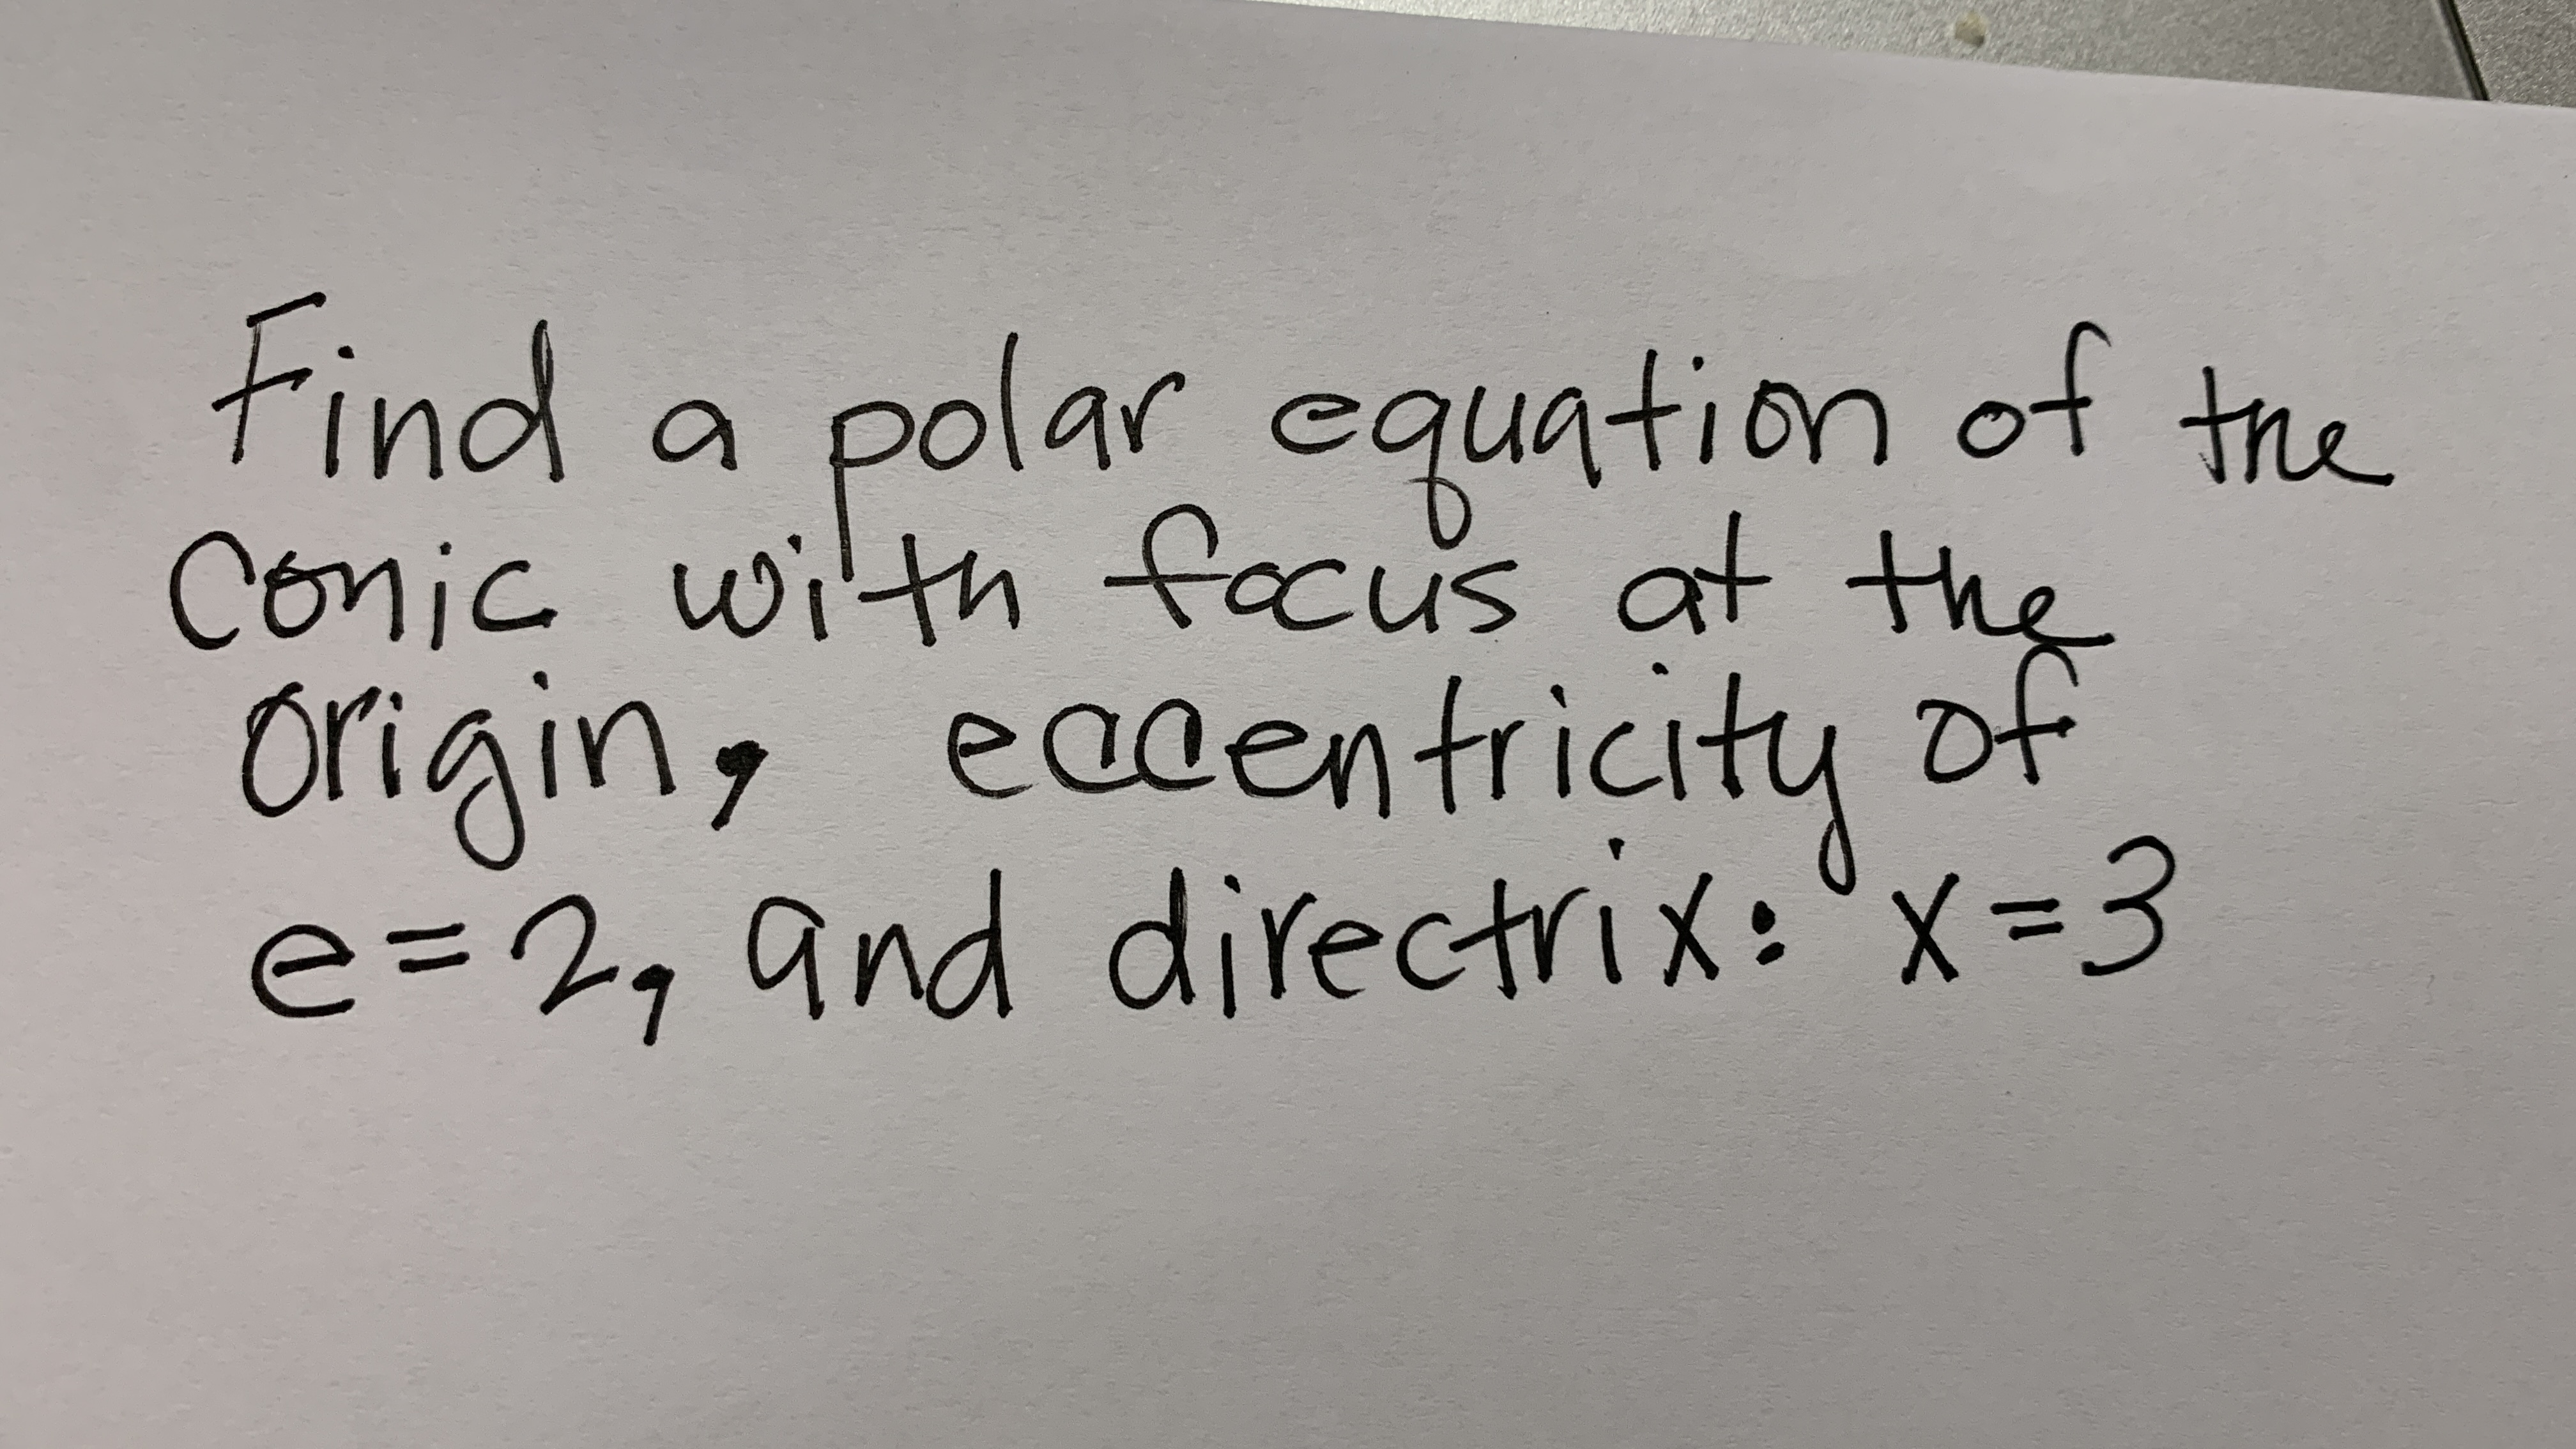 Find a polar equation of the
conic with focus at the
origin, eccentricity of
e=2, and directrix: x=3